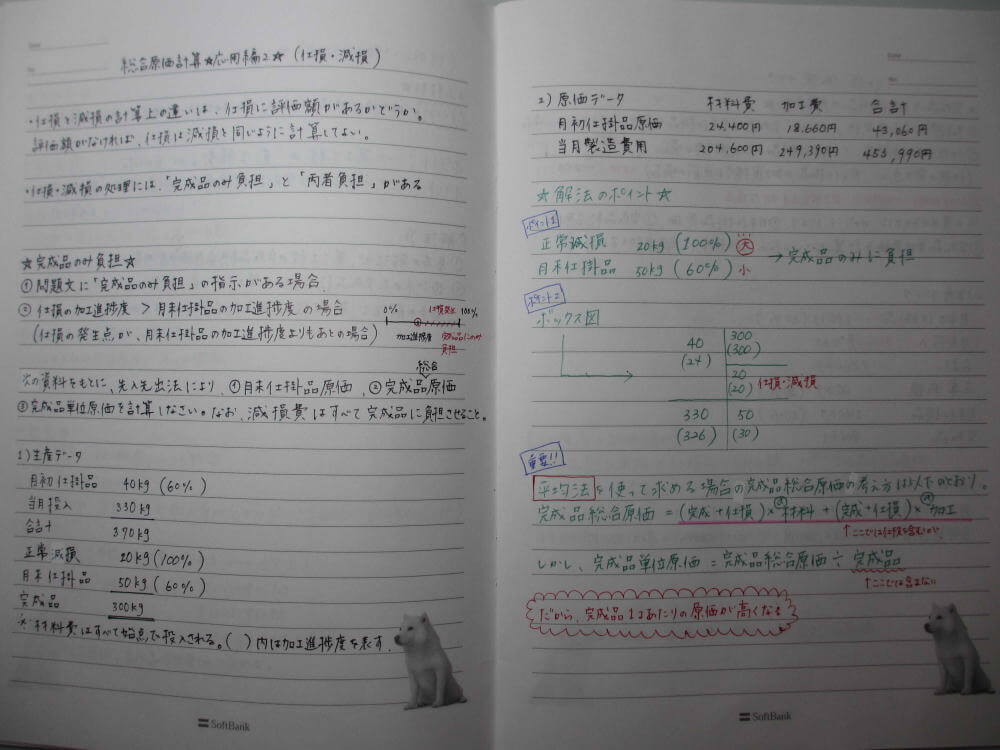 総合原価計算★応用編2★ (仕損・減損)
・仕損と減損の計算上の違いは、仕損に評価額があるかどうか。
評価額がなければ、仕損は減損と同じように計算してよい。
・仕損・減損の処理には、「完成品のみ負担」と「両者負担」がある
☆完成品のみ負担☆
①問題文に「完成品のみ負担」の指示がある場合
②仕損の加工進捗度 > 月末仕掛品の加工進捗度 の場合
(仕損の発生点が、月末仕掛品の加工進捗度よりもあとの場合)
0% 仕損発生 100%
加工進捗度 完成品にのみ
負担
総合
次の資料をもとに、先入先出法により、①月末仕掛品原価、②完成品原価
③完成品単位原価を計算しなさい。なお、減損費はすべて完成品に負担させること。
1)生産データ
月初仕掛品 40kg (60%)
当月投入 330kg
合計 370kg
正常減損 20kg (100%)
月末仕掛品 50kg (60%)
完成品 300kg
* 材料費はすべて始点で投入される。( )内は加工進捗度を表す.
SoftBank
Date
No
2)原価データ 材料費 加工費 合計
月初仕掛品原価 24,400円 18,660円 43,060円
当月製造費用 204,600円 249,390円 453,990円
☆解法のポイント☆
ポイント1
正常減損 20kg (100%) 大
月末仕掛品 50kg (60%) 小
→完成品のみに負担
ポイント2
ボックス図
40 300
(24) (300)
20
(20) 仕損・減損
330 50
(326) (30)
重要!!
平均法を使って求める場合の完成品総合原価の考え方は以下のとおり。
完成品総合原価 = (完成+仕損)×@材料 + (完成+仕損)×@加工
↑ここでは仕損を含むので、
しかし、完成品単位原価 = 完成品総合原価 ÷ 完成品
↑ここでは含まない
だから、完成品1コあたりの原価が高くなる
SoftBank